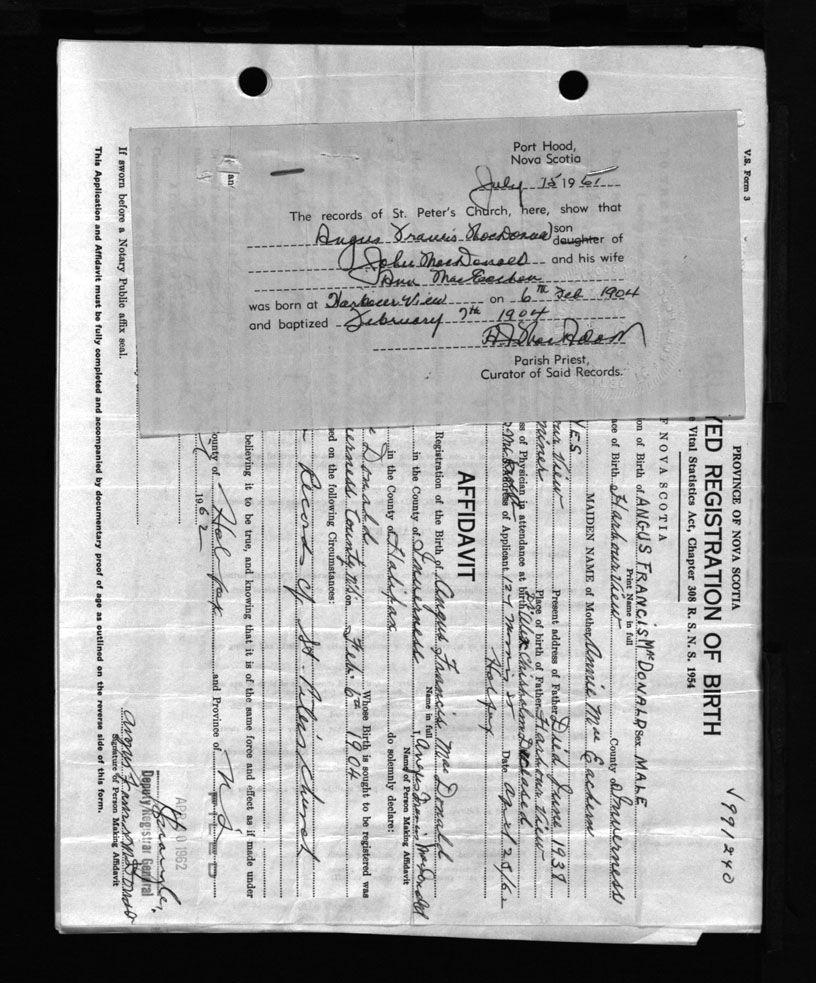 Port Hood,
Nova Scotia
July 15 1961
The records of St. Peter's Church, here, show that
Angus Francis MacDonald son
daughter of
John MacDonald and his wife
Ann MacEachen
was born at Harbour View on 6th Feb 1904
and baptized February 7th 1904
Parish Priest,
Curator of Said Records.
V.S. Form 3
PROVINCE OF NOVA SCOTIA
YED REGISTRATION OF BIRTH
e Vital Statistics Act, Chapter 308 R. S. N. S. 1954
V991240
F NOVA SCOTIA
ion of Birth of ANGUS FRANCIS MacDONALD Sex MALE
Print Name in full
ace of Birth Harbourview County of Inverness
MAIDEN NAME of Mother Annie Mac Eachern
YES
our View Present address of Father Died June 1938
miner Place of birth of Father Harbour View
ss of Physician in attendance at birth Chisholm Deceased
Address of Applicant 127 St Date April 25/62
Halifax
AFFIDAVIT
Registration of the Birth of Angus Francis MacDonald
Name in full
in the County of Inverness I, Angus Francis MacDonald
Name of Person Making Affidavit
in the County of Halifax do solemnly declare:
c Donald Whose Birth is sought to be registered was
verness County N.S. on Feb. 6th 1904
ed on the following Circumstances:
Records of St. Peter's Church
believing it to be true, and knowing that it is of the same force and effect as if made under
ounty of Halifax and Province of N.S.
1962
APR 1962
Deputy Registrar General
Signature of Person Making Affidavit
If sworn before a Notary Public affix seal.
This Application and Affidavit must be fully completed and accompanied by documentary proof of age as outlined on the reverse side of this form.